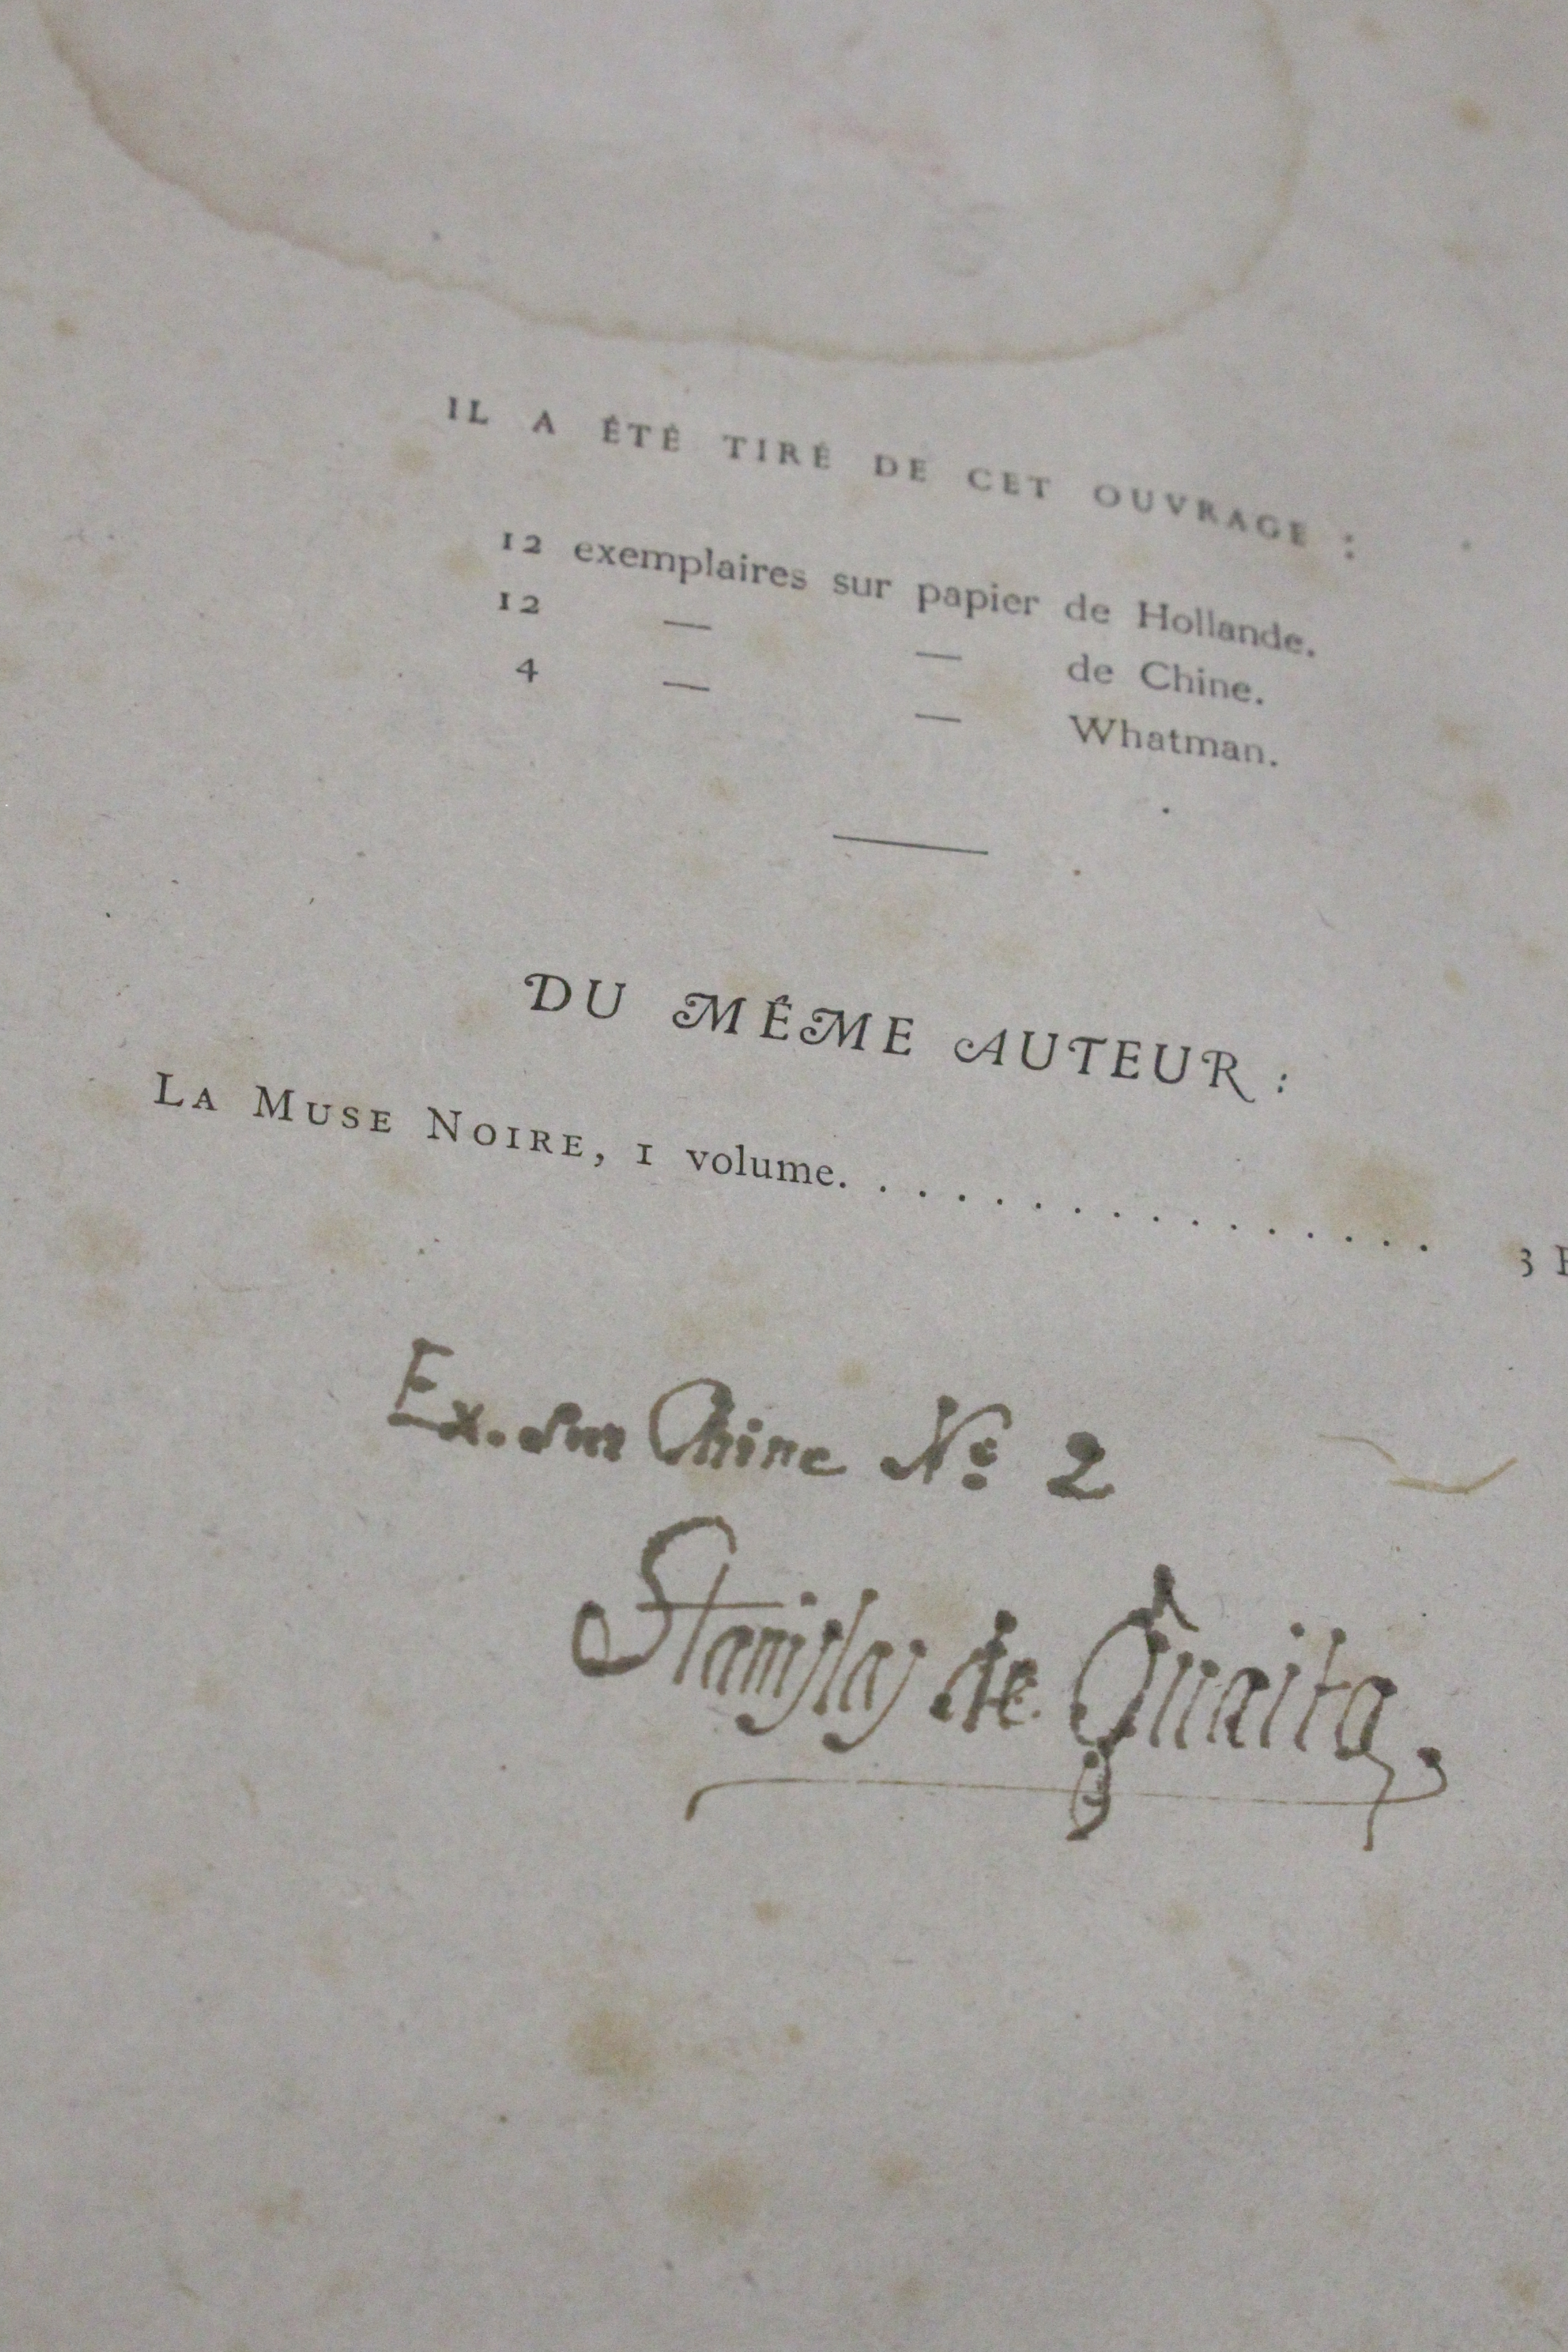 IL A ÉTÉ TIRÉ DE CET OUVRAGE :
12 exemplaires sur papier de Hollande.
12 — — de Chine.
4 — — Whatman.
DU MÊME AUTEUR :
LA MUSE NOIRE, 1 volume. . . . . . . . . . . . . . . . 3
Ex. sur Chine No 2
Stanislas de Guaita